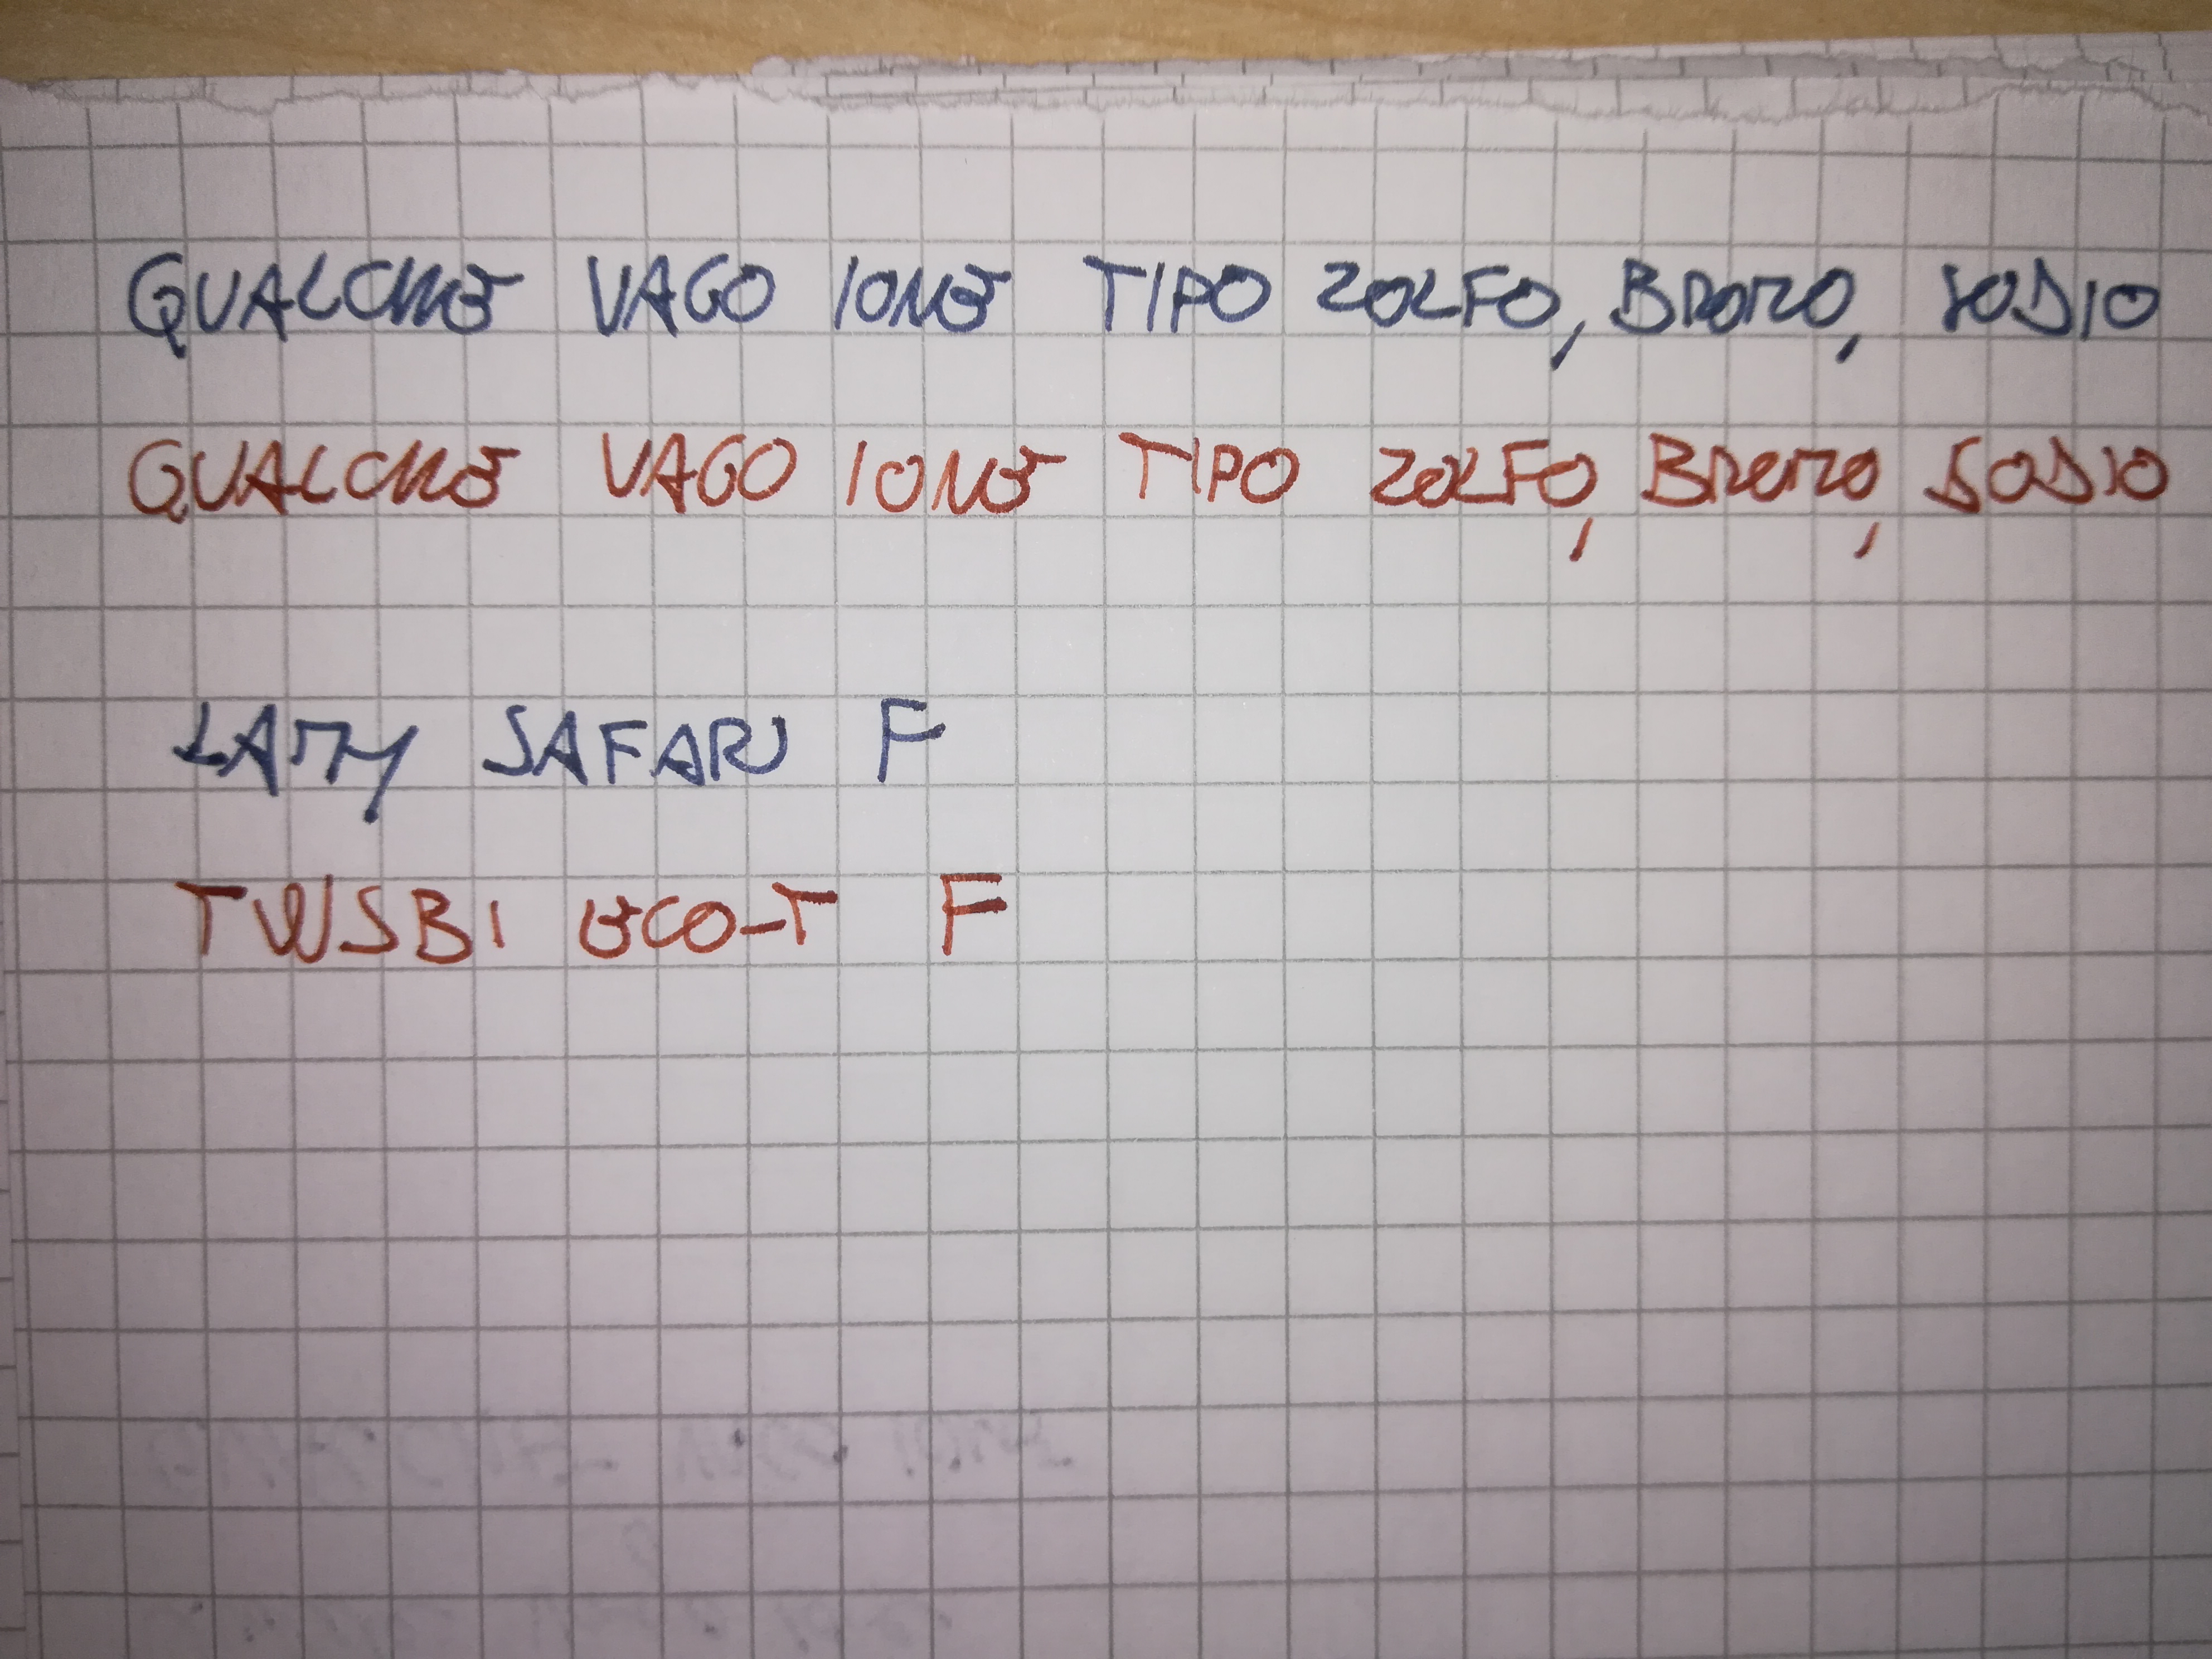 QUALCHE VAGO IONE TIPO ZOLFO, BROMO, SODIO
QUALCHE VAGO IONE TIPO ZOLFO, BROMO, SODIO
LAMY SAFARI F
TWSBI ECO-T F